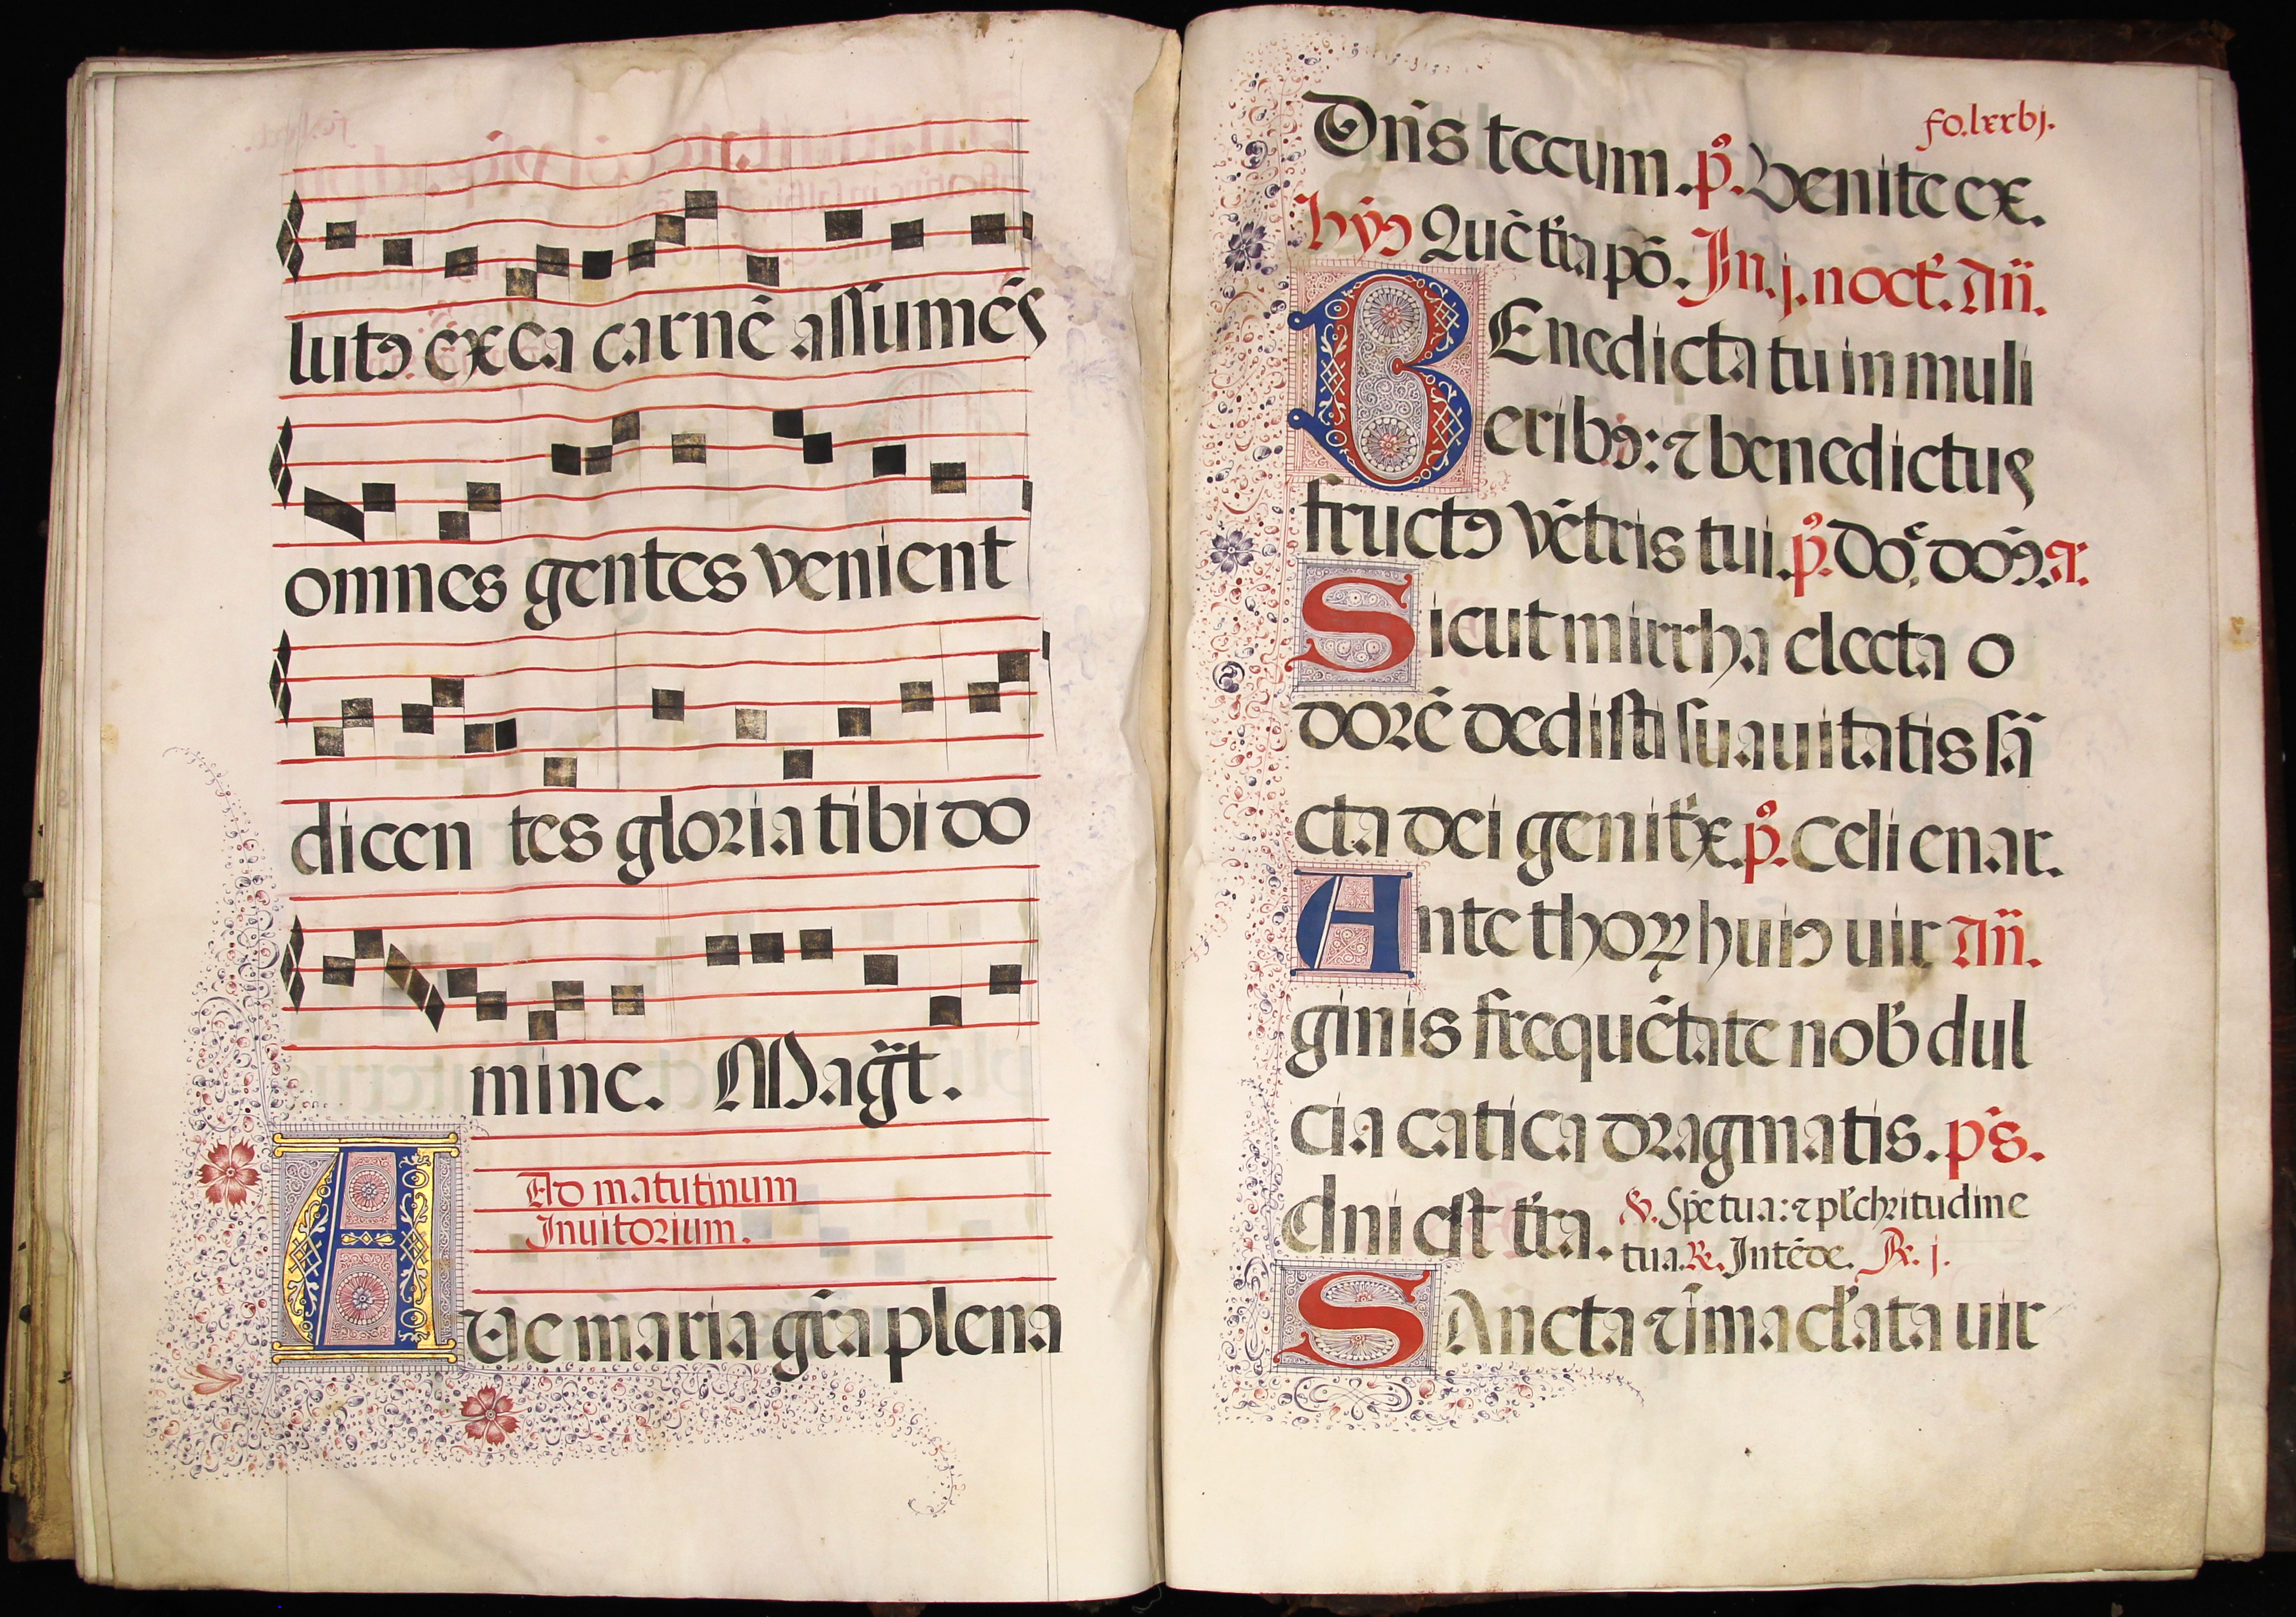 lutꝯ ex ea carnē aſſumēs
omnes gentes venient
dicen tes gloria tibi do
mine. Magt̄.
Ad matutinum
Inuitorium.
AUe maria gr̄a plena
fo.lxxvj.
Dn̄s tecum. pꝰ. Venite ex.
hyꝯ Quē t̄ra pō. In. j. noct̄. Añ.
BEnedicta tu in muli
eribꝯ: ⁊ benedictus
fructꝯ vētris tui. pꝰ. Do͛. doꝯ. a.
Sicut mirrha electa o
dorē dediſti ſuauitatis ſā
cta dei genitͥx. pꝰ. Celi enar.
Ante thoꝝ huiꝯ uir Añ.
ginis frequētate nob̄ dul
cia catica dragmatis. pͨs.
dni eſt t̄ra. ℣. Spē tua: ⁊ pl̄chritudine
tua. ℟. Intēde. ℟. j.
SAncta ⁊ īmacl̄ata uir